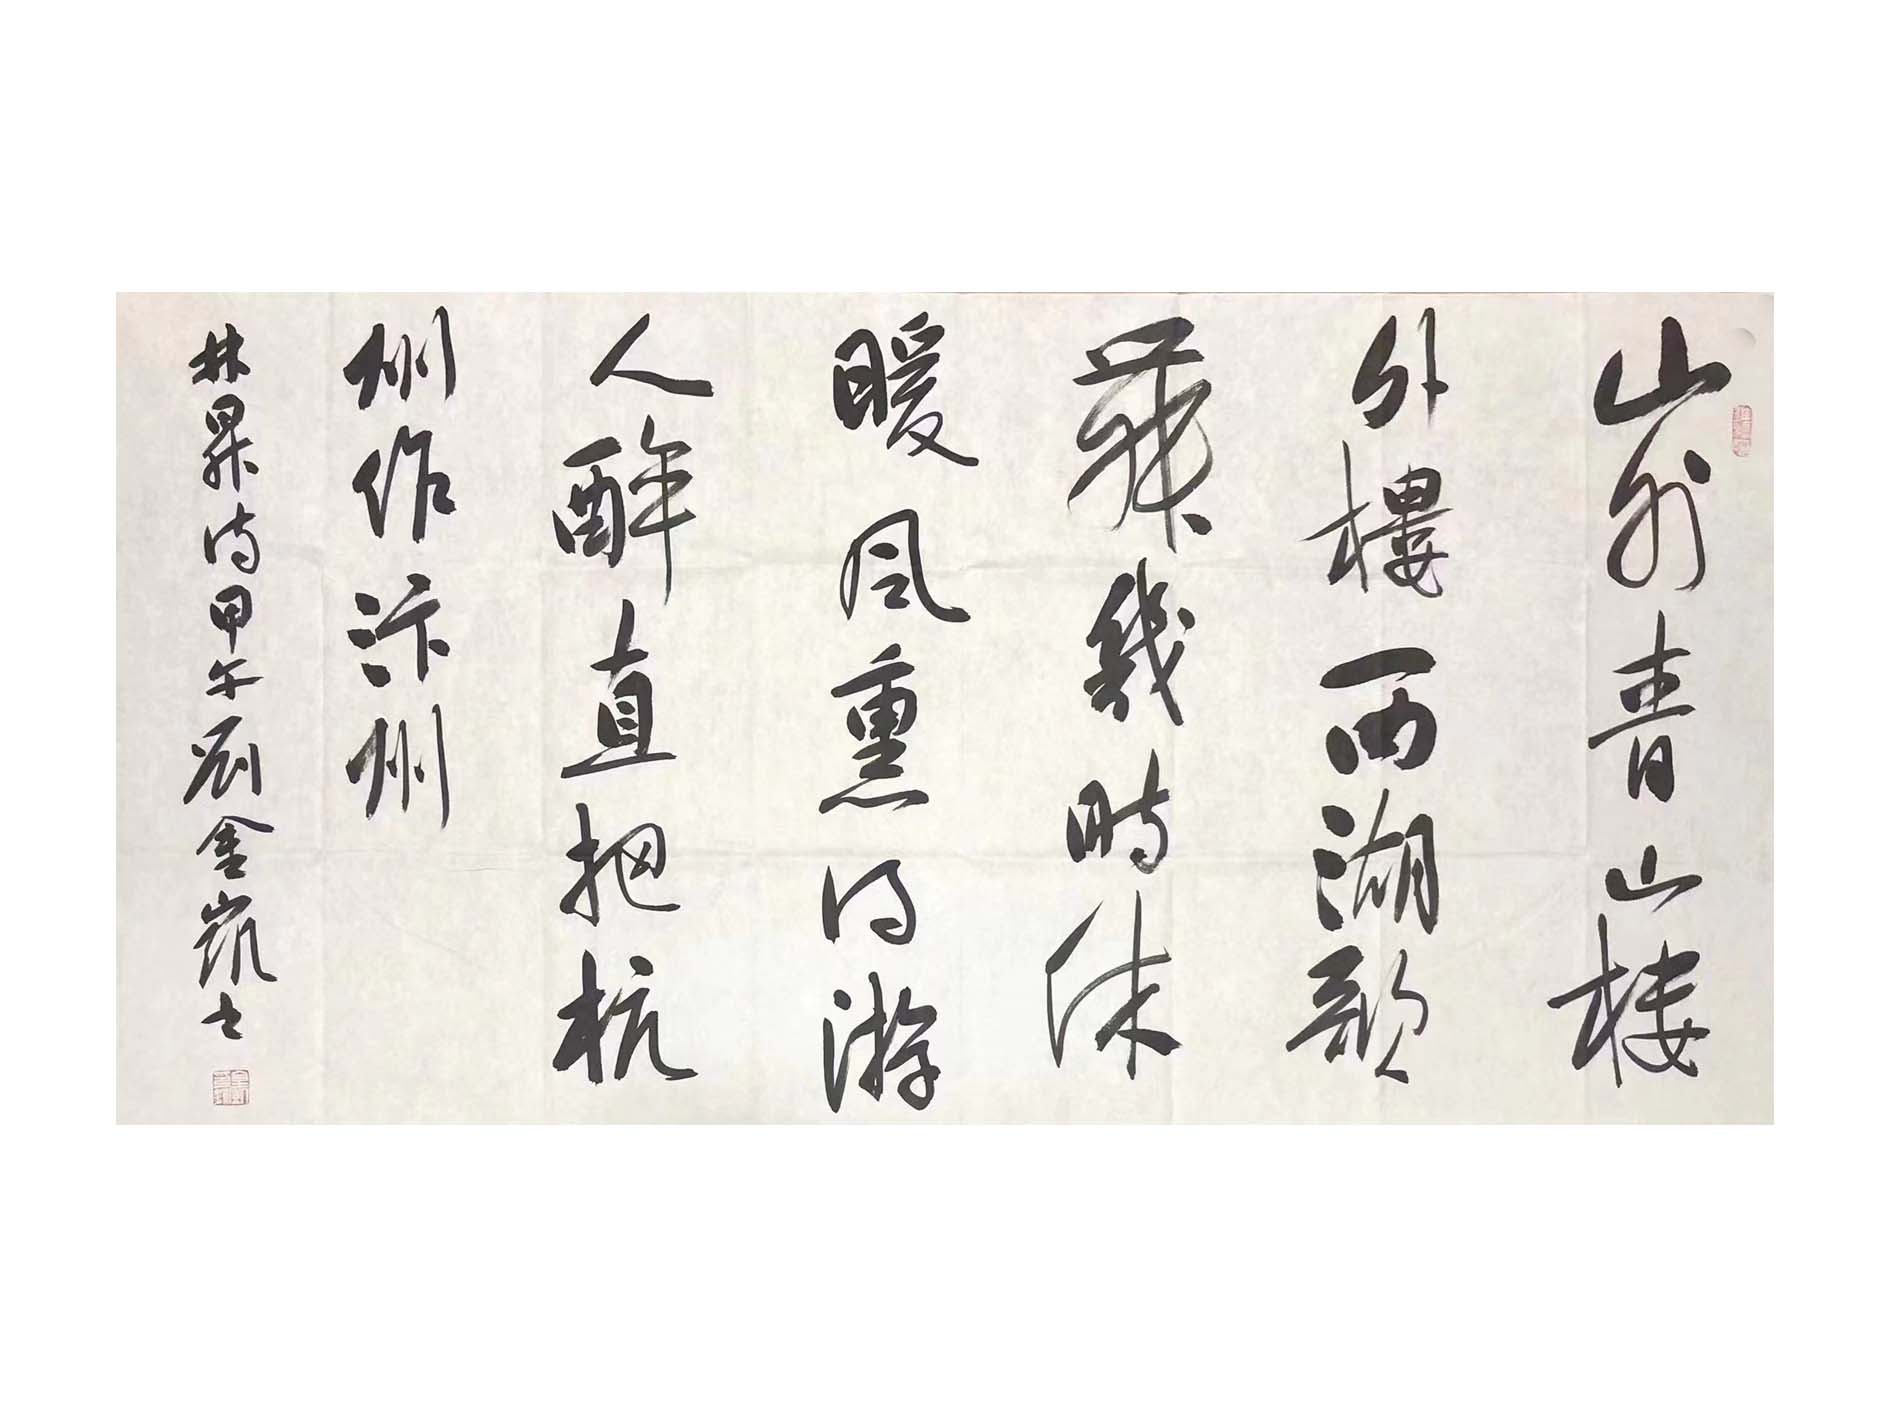 山外青山樓
外樓西湖歌
舞幾時休
暖風熏得游
人醉直把杭
州作汴州
林昇詩甲午劉金凱書